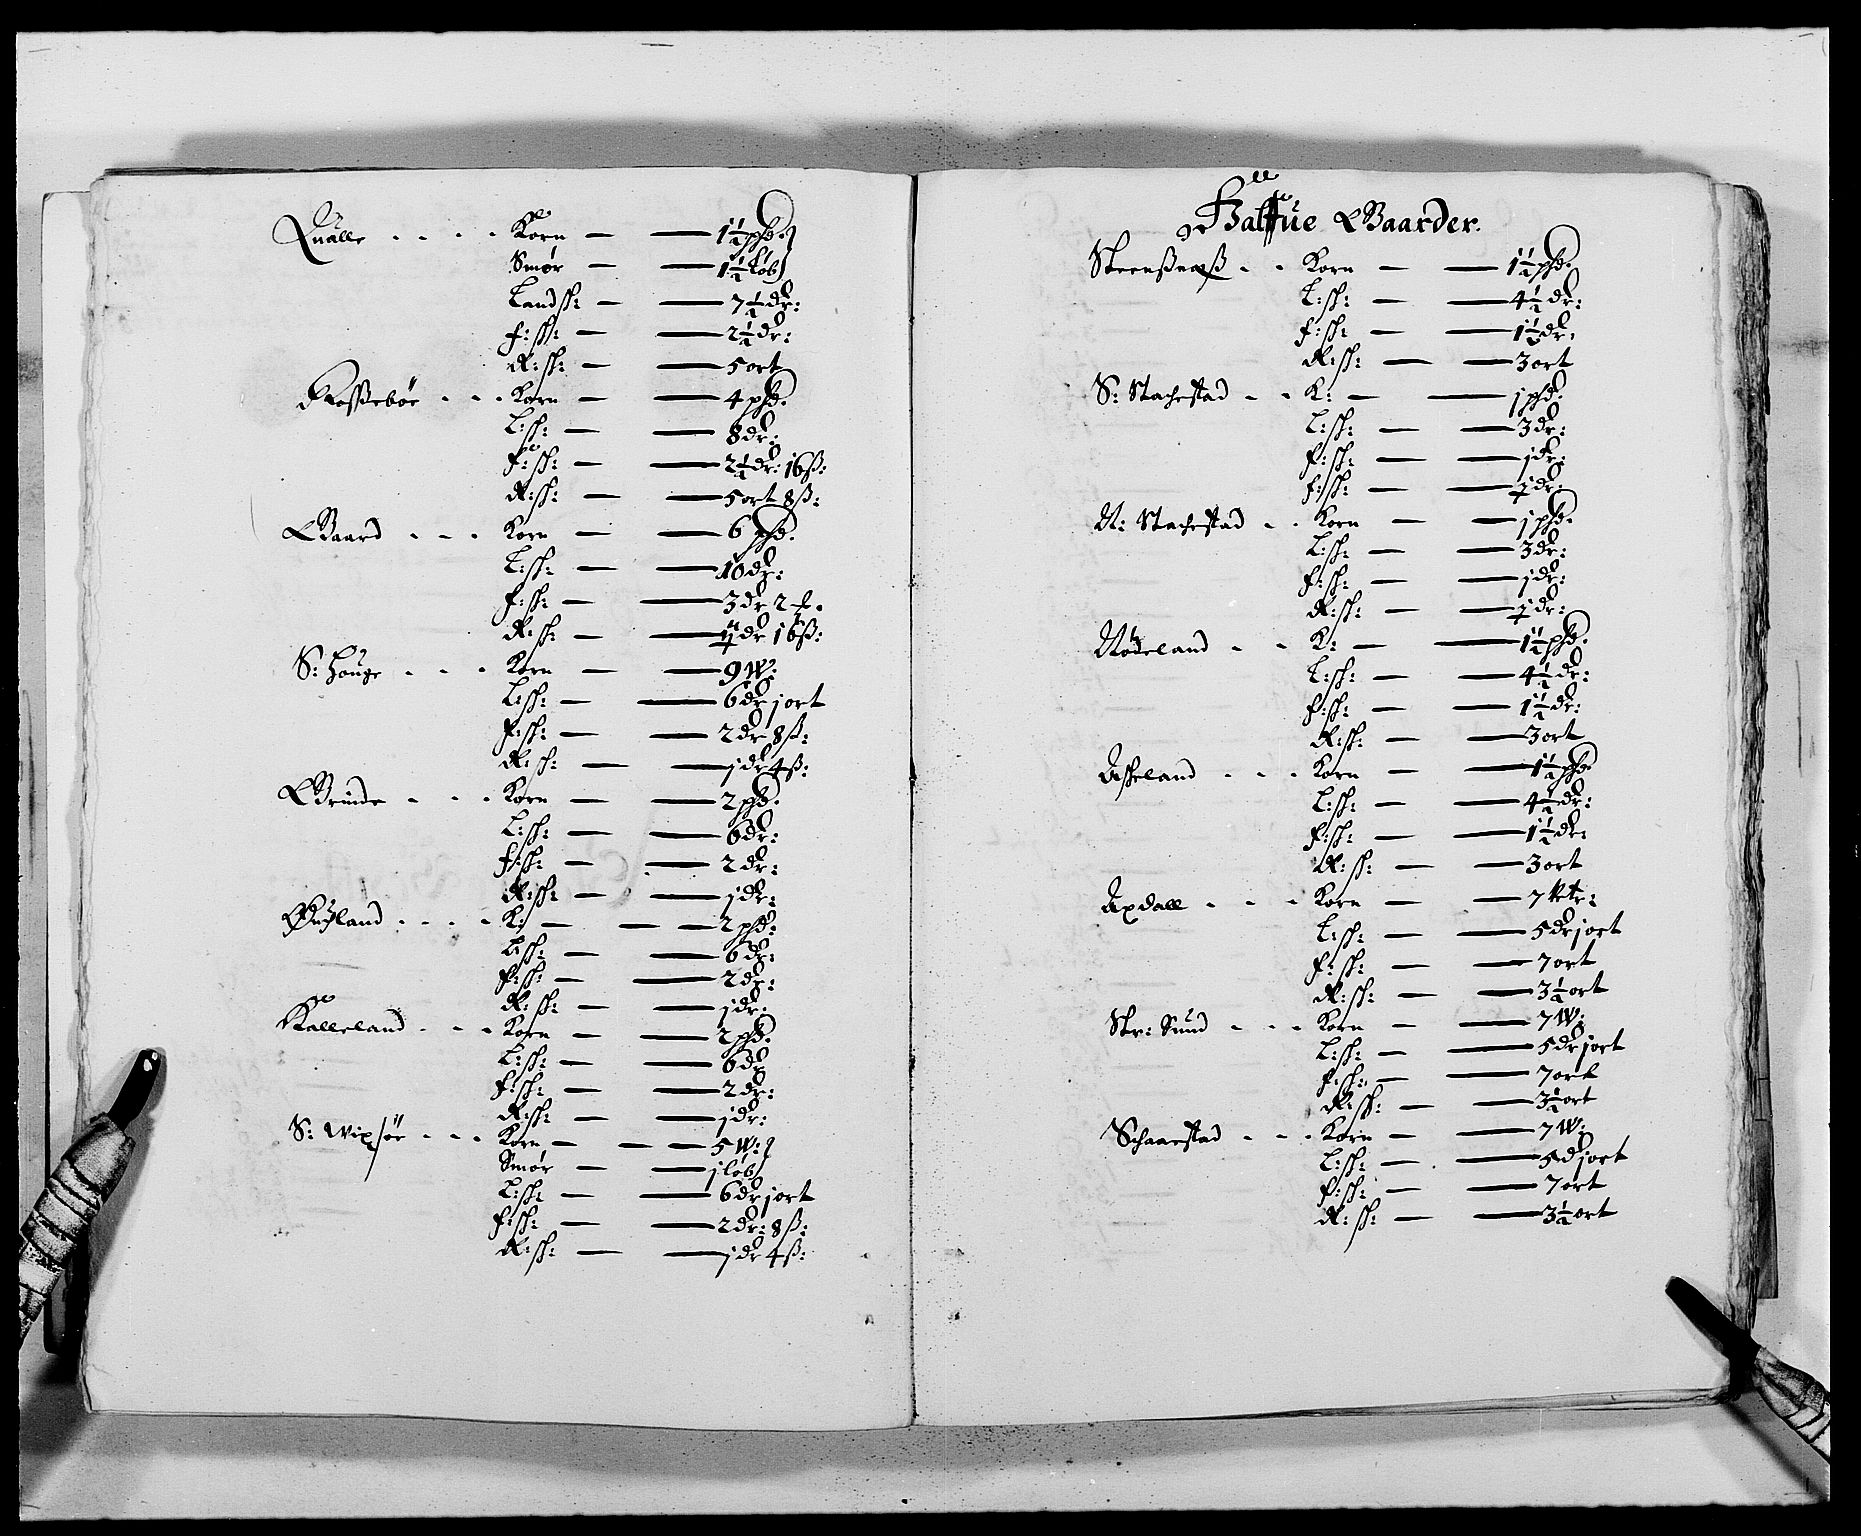 Qualle . . . . Korn — — 1½ phd.
Smør — — 1½ løb
Landsk: — — 7½ dr:
f: sk: — — 2½ dr:
R: sk: — — 5 ort
Korn — — 4 phd.
L: sk: — — 8 dr:
f: sk: — — 2½ dr: 16 ß:
R: sk: — — 5 ort 8 ß:
Gaard . . . Korn — — 6 phd.
L: sk: — — 10 dr:
f: sk: — — 3 dr
R: sk: — — dr 16 ß:
S: Houge . . . . Korn — — 9 W:
L: sk: — — 6 dr j ort
f: sk: — — 2 dr 8 ß:
R: sk: — — j dr 4 ß:
Grinde . . . Korn — — 2 phd.
L: sk: — — 6 dr:
f: sk: — — 2 dr:
R: sk: — — j dr:
. . . . K: — — 2 phd:
L: sk: — — 6 dr:
f: sk: — — 2 dr:
R: sk: — — j dr:
Kalleland . . . Korn — — 2 phd.
L: sk: — — 6 dr
f: sk: — — 2 dr:
R: sk: — — j dr:
S: Wixsör . . . Korn — — 5 W:
Smør — — j løb
L: sk: — — 6 dr j ort
f: sk: — — 2 dr: 8 ß:
R: sk: — — j dr 4 ß:
Halffue Gaarder.
Steensnæß . . Korn — — 1½ phd.
L: sk: — — 4½ dr:
f: sk: — — 1½ dr.
R: sk: — — 3 ort
S: Stachestad . . K: — — j phd.
L: sk: — — 3 dr:
f: sk: — — j dr:
f: sk: — — ½ dr:
N: Stachestad . . Korn — — j phd.
L: sk: — — 3 dr:
f: sk: — — j dr:
R: sk: — — ½ dr:
Nödeland . . K: — — 1½ phd.
L: sk: — — 4½ dr:
f: sk: — — 1½ dr:
R: sk: — — 3 ort
Askeland . . . Korn — — 1½ phd
L: sk: — — 4½ dr:
f: sk: — — 1½ dr:
R: sk: — — 3 ort
Axdall . . . Korn — — 7
L: sk: — — 5 dr j ort
f: sk: — — 7 ort
R: sk: — — 3½ ort
Str: Sund . . . Korn — — 7 W:
L: sk: — — 5 dr j ort
f: sk: — — 7 ort
R: sk: — — 3½ ort
Schaarestad . . . Korn — — 7 W:
L: sk: — — 5 d j ort
f: sk: — — 7 ort
R: sk: — — 3½ ort